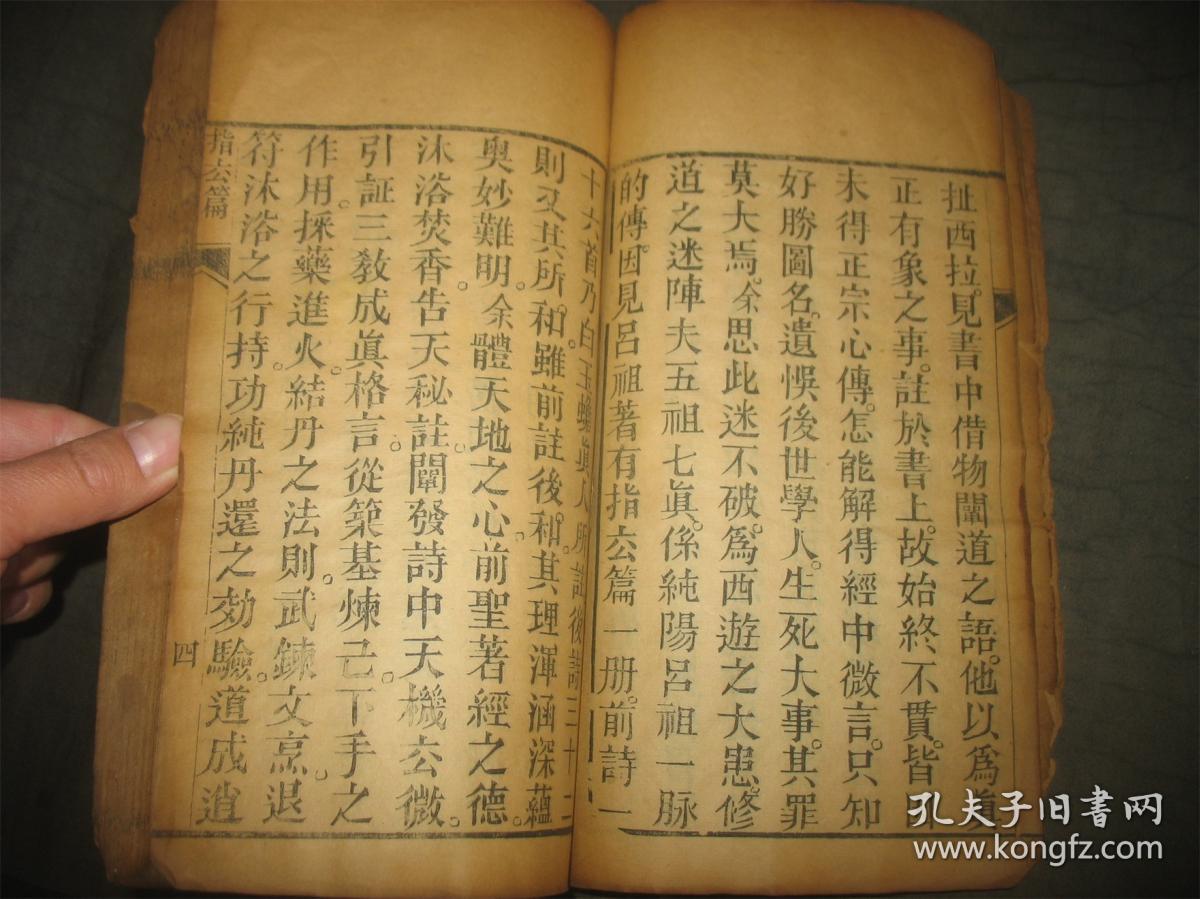 扯西拉。見書中借物闡道之語。他以爲眞
正有象之事。註於書上。故始終不貫。皆
未得正宗心傳。怎能解得經中微言。只知
好勝圖名。遺悞後世學人。生死大事。其罪
莫大焉。余思此迷不破。爲西遊之大患。修
道之迷陣夫五祖七眞。係純陽呂祖一脉
的傳。因見呂祖著有指玄篇一册。前詩一
十六首乃白玉蟾眞人所註後詩三十二
則又其所。和雖前註後。和。其理渾涵深蘊
奥妙難明。余體天地之心。前聖著經之德。
沐浴焚香。告天秘註。闡發詩中天機玄微。
引証三敎成眞格言。從築基煉己。下手之
作用。採藥進火。結丹之法則。武鍊文烹。退
符沐浴之行持。功純丹還之効驗。道成逍
指玄篇
四
孔夫子旧书网
www.kongfz.com